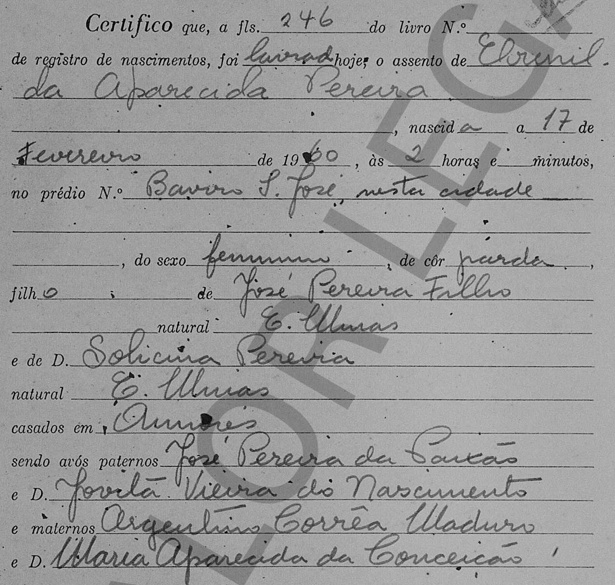 Certifico que, a fls. 246 do livro N.º
de registro de nascimentos, foi lavrado hoje, o assento de
da Aparecida Pereira
, nascida a 17 de
Fevereiro de 1960, às 2 horas e minutos,
no prédio N.º Bairro S. José, nesta cidade
, do sexo feminino, de côr parda,
filho de José Pereira Filho
natural E. Minas
e de D. Pereira
natural E. Minas
casados em Aimorés
sendo avós paternos José Pereira da Paixão
e D. Jovita Vieira do Nascimento
e maternos Argentino Corrêa Maduro
e D. Maria Aparecida da Conceição
VALOR LEGAL